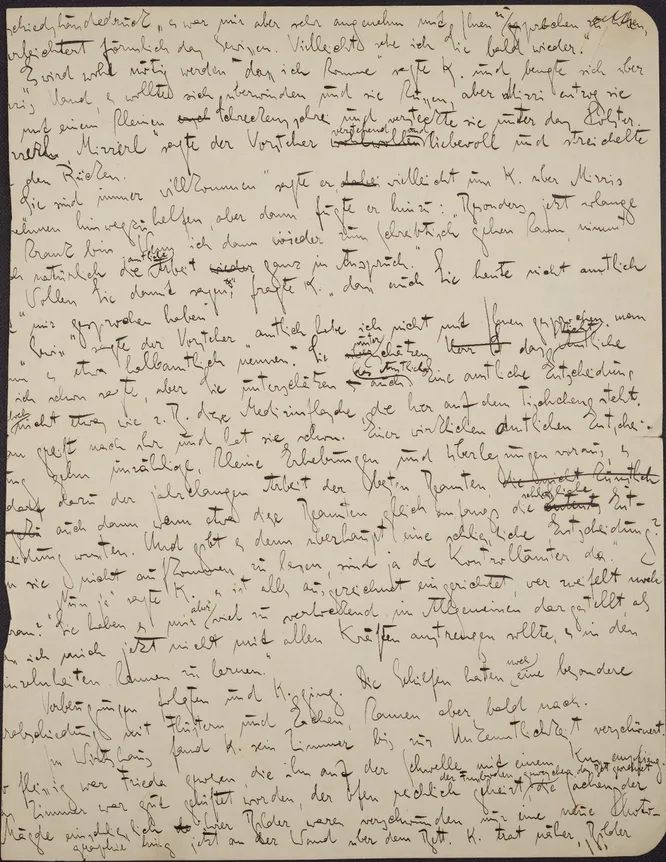 schiedshändedruck „es war mir aber sehr angenehm mit Ihnen zu gesprochen zu haben,
erleichtert förmlich das Gewissen. Vielleicht sehe ich Sie bald wieder."
„Es wird wohl nötig werden dass ich komme" sagte K. und beugte sich über
Mizzis Hand, er wollte sich überwinden und sie küssen, aber Mizzi entzog sie
mit einem kleinen Schreckensschrei und versteckte sie unter das Polster.
Mizzerl, Mizzerl" sagte der Vorsteher verzeihend und liebevoll und streichelte
den Rücken.
Sie sind immer willkommen" sagte er vielleicht um K. über Mizzis
hinwegzuhelfen, aber dann fügte er hinzu: „Besonders jetzt solange
krank bin. Wenn ich dann wieder zum Schreibtisch gehen kann, nimmt
natürlich die amtliche Arbeit wieder ganz in Anspruch.
Wollen Sie damit sagen" fragte K. „dass auch Sie heute nicht amtlich
mit mir gesprochen haben"
„Gewiss" sagte der Vorsteher „amtlich habe ich nicht mit Ihnen gesprochen, man
kann es etwa halbamtlich nennen. Sie unterschätzen das Amtliche
wie ich schon sagte, aber Sie unterschätzen auch das Amtliche. Eine amtliche Entscheidung
ist doch nicht etwas wie z. B. diese Medizinflasche, die hier auf dem Tischchen steht.
Man greift nach ihr und hat sie schon. Einer wirklichen amtlichen Entschei-
dung gehn unzählige, kleine Erhebungen und Überlegungen voraus, es
bedarf dazu der jahrelangen Arbeit der besten Beamten,
auch dann wenn etwa diese Beamten gleich anfangs die schliessliche Ent-
scheidung wussten. Und gibt es denn überhaupt eine schliessliche Entscheidung?
Um sie nicht aufkommen zu lassen, sind ja die Kontrollämter da."
„Nun ja" sagte K. „es ist alles ausgezeichnet eingerichtet, wer zweifelt noch
daran? Sie haben es mir aber viel zu verlockend im Allgemeinen dargestellt, als
dass ich mich jetzt nicht mit allen Kräften anstrengen sollte, es in den
Einzelnheiten kennen zu lernen."
Verbeugungen folgten und K. ging. Die Gehilfen hatten noch eine besondere
Verabschiedung mit Flüstern und Lachen, kamen aber bald nach.
Im Wirtshaus fand K. sein Zimmer bis zur Unkenntlichkeit verschönert.
So fleissig war Frieda gewesen, die ihn auf der Schwelle mit einem Kuss empfing.
Das Zimmer war gut gelüftet worden, der Ofen reichlich geheizt, der Fussboden gewaschen, das Bett geordnet, die Sachen der
Mägde einschliesslich ihrer Bilder waren verschwunden nur eine neue Photo-
graphie hing jetzt an der Wand über dem Bett. K. trat näher, Bilder